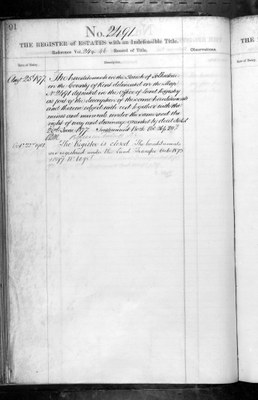 91
No. 2491
THE REGISTER of ESTATES with an Indefeasible Title.
THE R
Reference Vol. Record of Title.
Date of Entry.
Description.
Observations.
Aug 25th 1877
The hereditaments in the Parish of
in the County of Kent delineated on the Map
No 2491 deposited in the Office of Land Registry
as part of the description of the same hereditaments
and thereon edged with red together with the
mines and minerals under the same and the
right of way and drainage granted by deed dated
June 1877
Oct 22nd
The Register is closed. The hereditaments
are registered under the Land Transfer Acts 1875
&